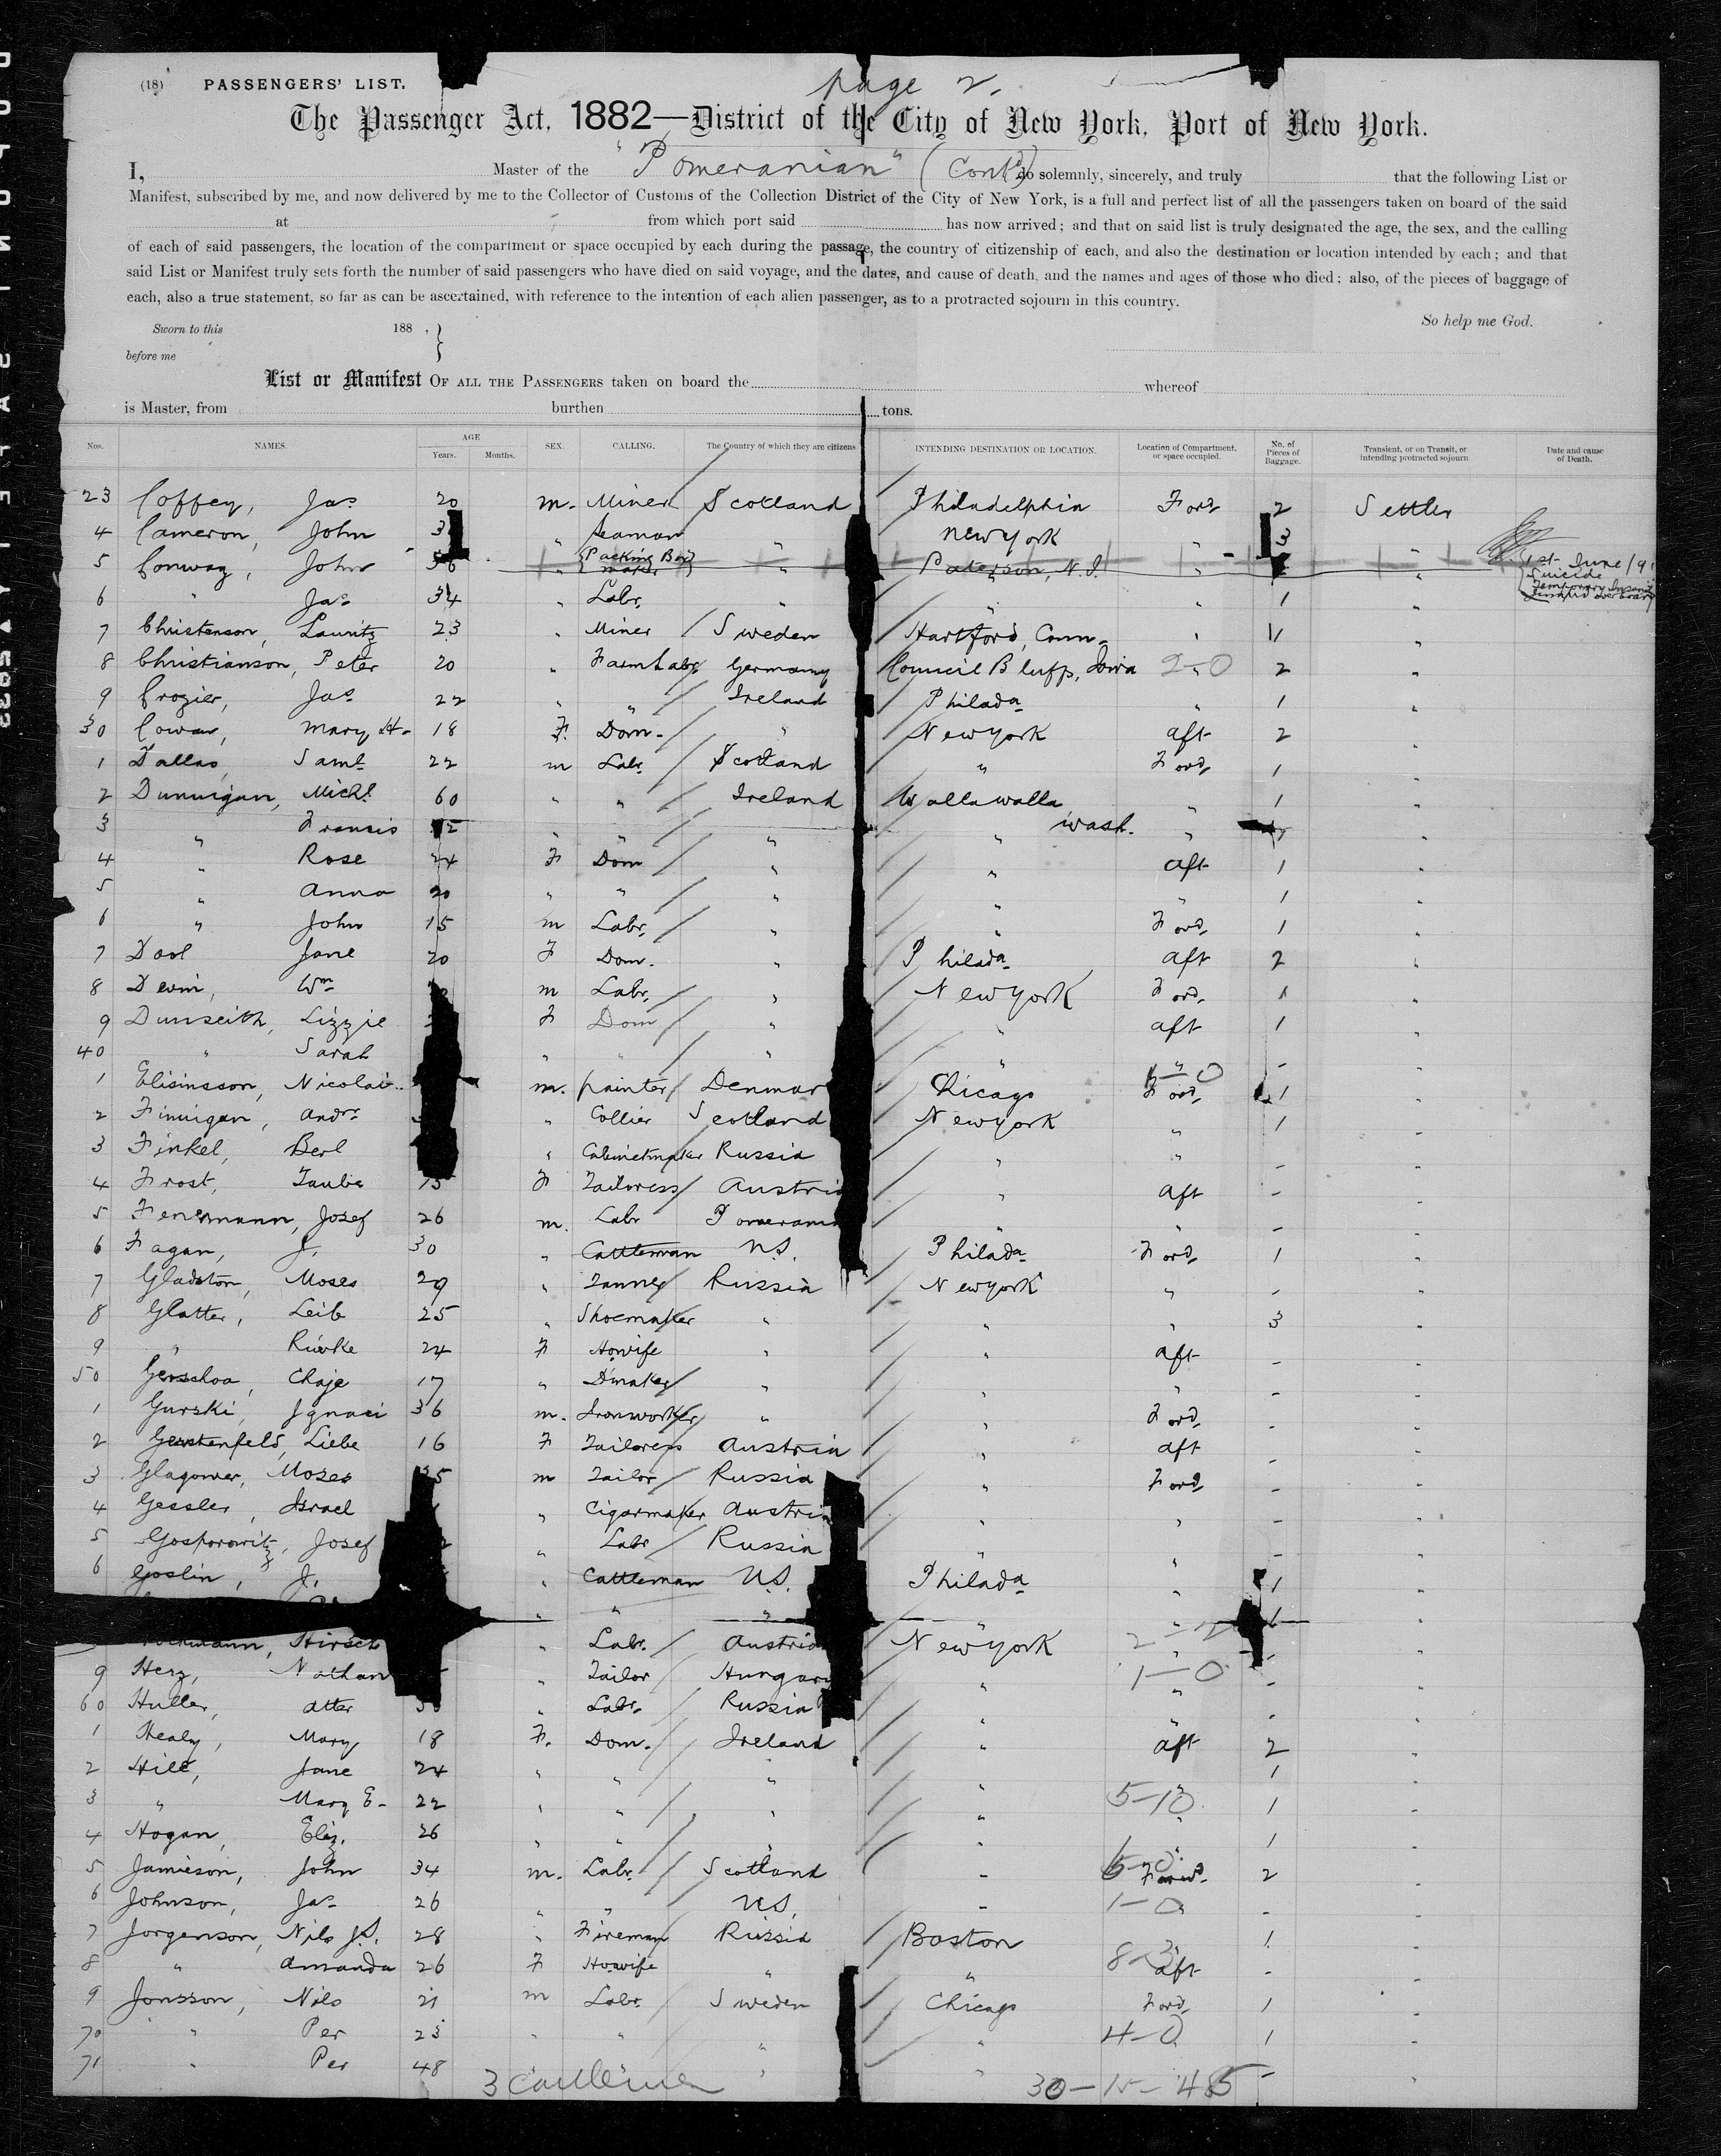 (18) PASSENGERS' LIST. page 2.
The Passenger Act, 1882—District of the City of New York, Port of New York.
I, Master of the "Pomeranian" (Contd) do solemnly, sincerely, and truly that the following List or
Manifest, subscribed by me, and now delivered by me to the Collector of Customs of the Collection District of the City of New York, is a full and perfect list of all the passengers taken on board of the said
at from which port said has now arrived; and that on said list is truly designated the age, the sex, and the calling
of each of said passengers, the location of the compartment or space occupied by each during the passage, the country of citizenship of each, and also the destination or location intended by each; and that
said List or Manifest truly sets forth the number of said passengers who have died on said voyage, and the dates, and cause of death, and the names and ages of those who died; also, of the pieces of baggage of
each, also a true statement, so far as can be ascertained, with reference to the intention of each alien passenger, as to a protracted sojourn in this country.
So help me God.
Sworn to this 188 .
before me
List or Manifest OF ALL THE PASSENGERS taken on board the whereof
is Master, from burthen tons.
Nos. NAMES. AGE Years. Months. SEX. CALLING. The Country of which they are citizens INTENDING DESTINATION OR LOCATION. Location of Compartment, or space occupied. No. of Pieces of Baggage. Transient, or on Transit, or intending protracted sojourn. Date and cause of Death.
23 Coffey, Jas 20 m. Miner Scotland Philadelphia Ford 2 Settler
4 Cameron, John 3 " Seaman " New York " 3 "
5 Conway, John 36 " Packing Box maker " Paterson, N.J. " 1st June/91 Suicide Temporary Insanity Jumped overboard
6 " Jas 34 " Labr. " " " 1 "
7 Christenson, Lauritz 23 " Miner Sweden Hartford, Conn. " 11 "
8 Christianson, Peter 20 " Farm Labr Germany Council Bluffs, Iowa 2-0 " 2 "
9 Crozier, Jas 22 " " Ireland Philada " 1 "
30 Cowan, Mary H. 18 F. Dom. " New York aft 2 "
1 Dallas, Saml 22 m Labr. Scotland " Ford, 1 "
2 Dunnigan, Michl 60 " " Ireland Walla walla " 1 "
3 " Francis " " " " wash. " "
4 " Rose 24 F Dom " " aft 1 "
5 " Anna 20 " " " " " 1 "
6 " John 15 m Labr. " " Ford, 1 "
7 Dool Jane 20 F Dom. " Philada aft 2 "
8 Devin, Wm m Labr. " New York Ford, 1 "
9 Dunseith, Lizzie F Dom " " aft 1 "
40 " Sarah " " " " " - "
1 Elisinsson, Nicolai m. painter Denmar Chicago 1-0 Ford, 1 "
2 Finnigan, Andr " Collier Scotland New York " 1 "
3 Finkel, Berl " Cabinetmaker Russia " " - "
4 Frost, Taube 15 F Tailoress Austria " aft - "
5 Josef 26 m. Labr Pomerania " " - "
6 Fagan, J. 30 " Cattleman U.S. Philada Ford, 1 "
7 Gladston, Moses 29 " Tanner Russia New York " - "
8 Glatter, Leib 25 " Shoemaker " " " 3 "
9 " Riwke 24 F Howife " " aft - "
50 Gerschoa, Chaje 17 " Dmaker " " " - "
1 Gurski, Ignaci 36 m. Ironworker " " Ford, - "
2 Gerstenfeld, Liebe 16 F Tailoress Austria " aft - "
3 Glagower, Moses 35 m Tailor Russia " Ford - "
4 Gessler, Israel " Cigarmaker Austria " " - "
5 Gosporowitz, Josef " Labr Russia " " - "
6 Goslin, J. " Cattleman U.S. Philada " 1 "
" " " " " 1 "
Hirsch " Labr. Austria New York 2-2 " - "
9 Herz, Nathan " Tailor Hungary " 1-0 - "
60 Huller, Atter " Labr. Russia " " - "
1 Healy, Mary 18 F. Dom. Ireland " aft 2 "
2 Hill, Jane 24 " " " " " 1 "
3 " Mary E. 22 " " " " 5-10 1 "
4 Hogan, Eliz. 26 " " " " " 1 "
5 Jamieson, John 34 m. Labr. Scotland " 6-0 Forwd. 2 "
6 Johnson, Jas 26 " " U.S. " 1-0 - "
7 Jorgenson, Nils J.S. 28 " Fireman Russia Boston " 1 "
8 " Amanda 26 F Howife " " 8-3 aft - "
9 Jonsson, Nils 21 m Labr. Sweden Chicago Ford, 1 "
70 " Per 23 " " " " 4-0 1 "
71 " Per 48 " " - "
3 Cattlemen 30-15-45